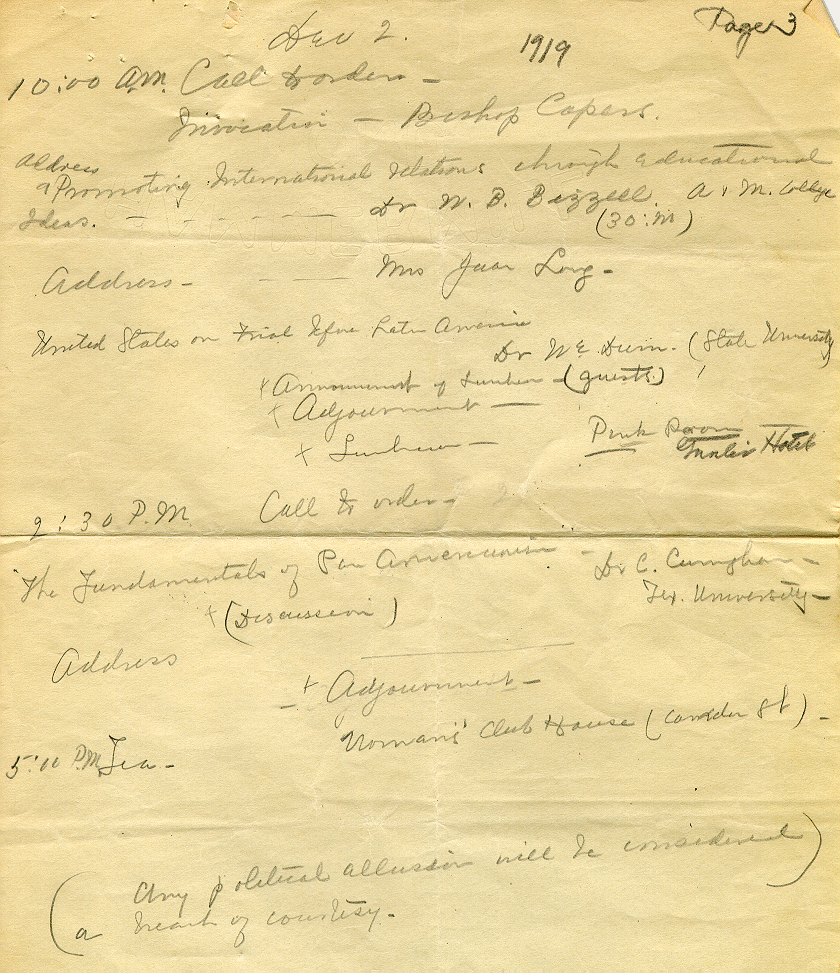 Page 3
Dec 2. 1919
10:00 A.M. Call to order -
Invocation - Bishop Capers.
Address
"Promoting International Relations through educational
Ideas. - Dr W. B. Bizzell. A & M. College
(30 : M)
Address - Mrs Juan Long -
United States on Trial before Latin America
Dr W E Dunn. (State University
x Announcement of Luncheon - (guests)
x Adjournment -
x Luncheon - Pink Room
Gunter Hotel
2:30 P.M. Call to order -
"The Fundamentals of Pan Americanism - Dr C. Cunningham -
Tex. University -
x (Discussion)
Address
x Adjournment -
Woman's Club House ( St) -
5:00 P.M. Tea -
(Any political allusion will be considered
a breach of courtesy. - )